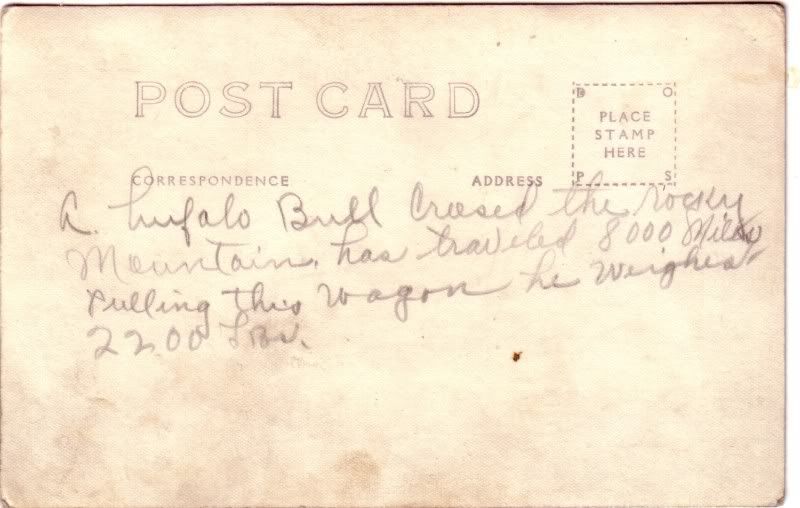 POST CARD
D O
PLACE
STAMP
HERE
P S
CORRESPONDENCE ADDRESS
A. bufalo Bull Crosed the rocky
Mountain. has traveled 8000 Miles
Pulling this wagon he Weighes
2200 Lbs.